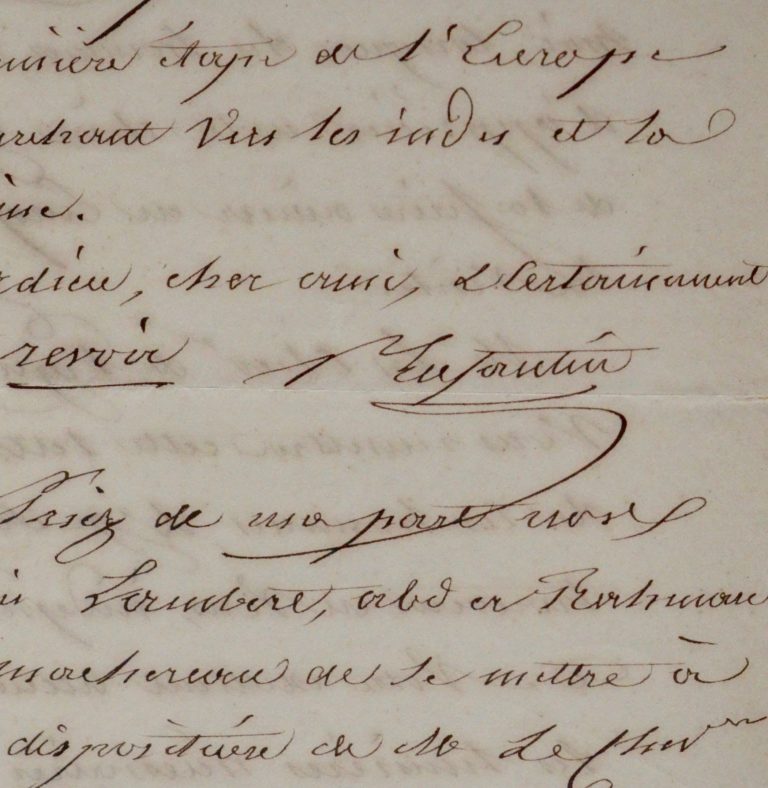 étape de l'Europe
marchant vers les indes et la
ine.
adieu, cher ami, & Certainement
revoir Enfantin
Priez de ma part nos
Lambert, abd er Rahman
machereau de se mettre à
disposition de M Le Chev